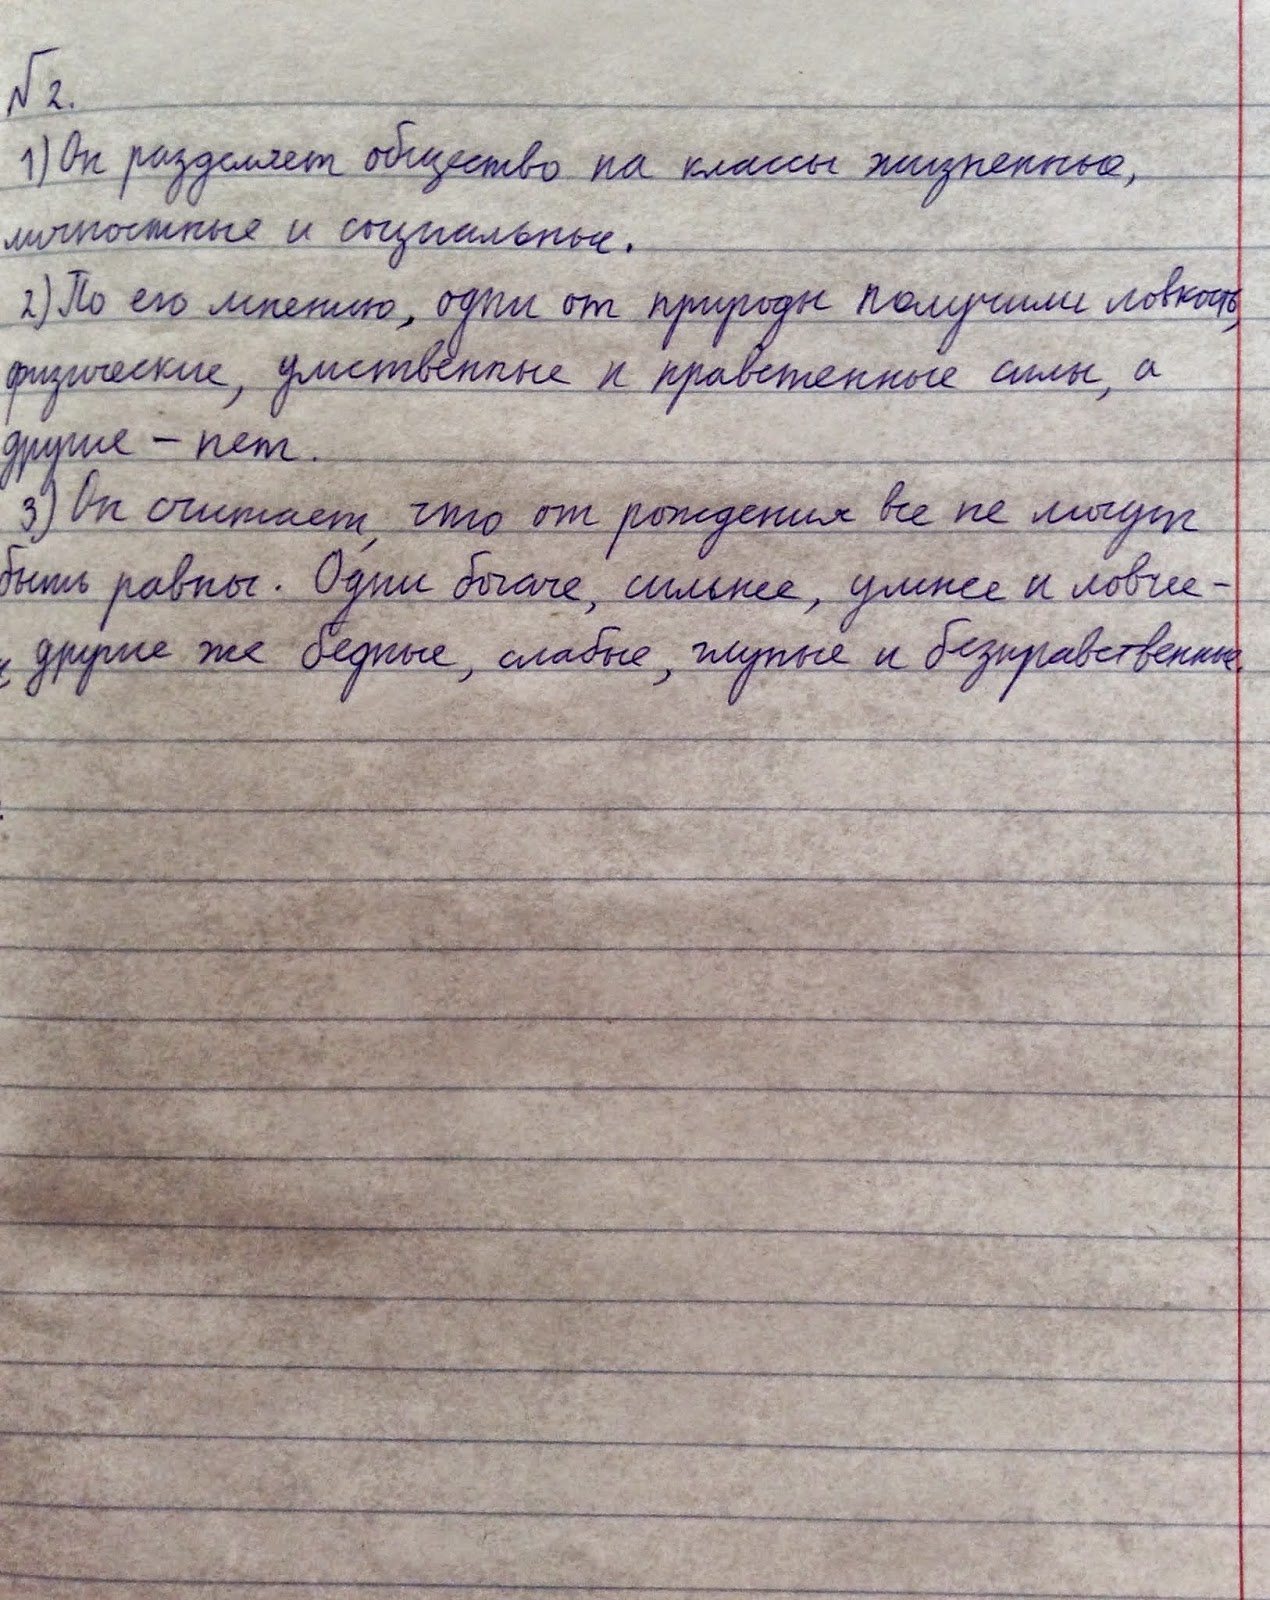 №2.
1) Он разделяет общество на классы жизненные,
личностные и социальные.
2) По его мнению, одни от природы получили ловкость,
физические, умственные и нравственные силы, а
другие – нет.
3) Он считает, что от рождения все не могут
быть равны. Одни богаче, сильнее, умнее и ловчее –
другие же бедные, слабые, глупые и безнравственные.